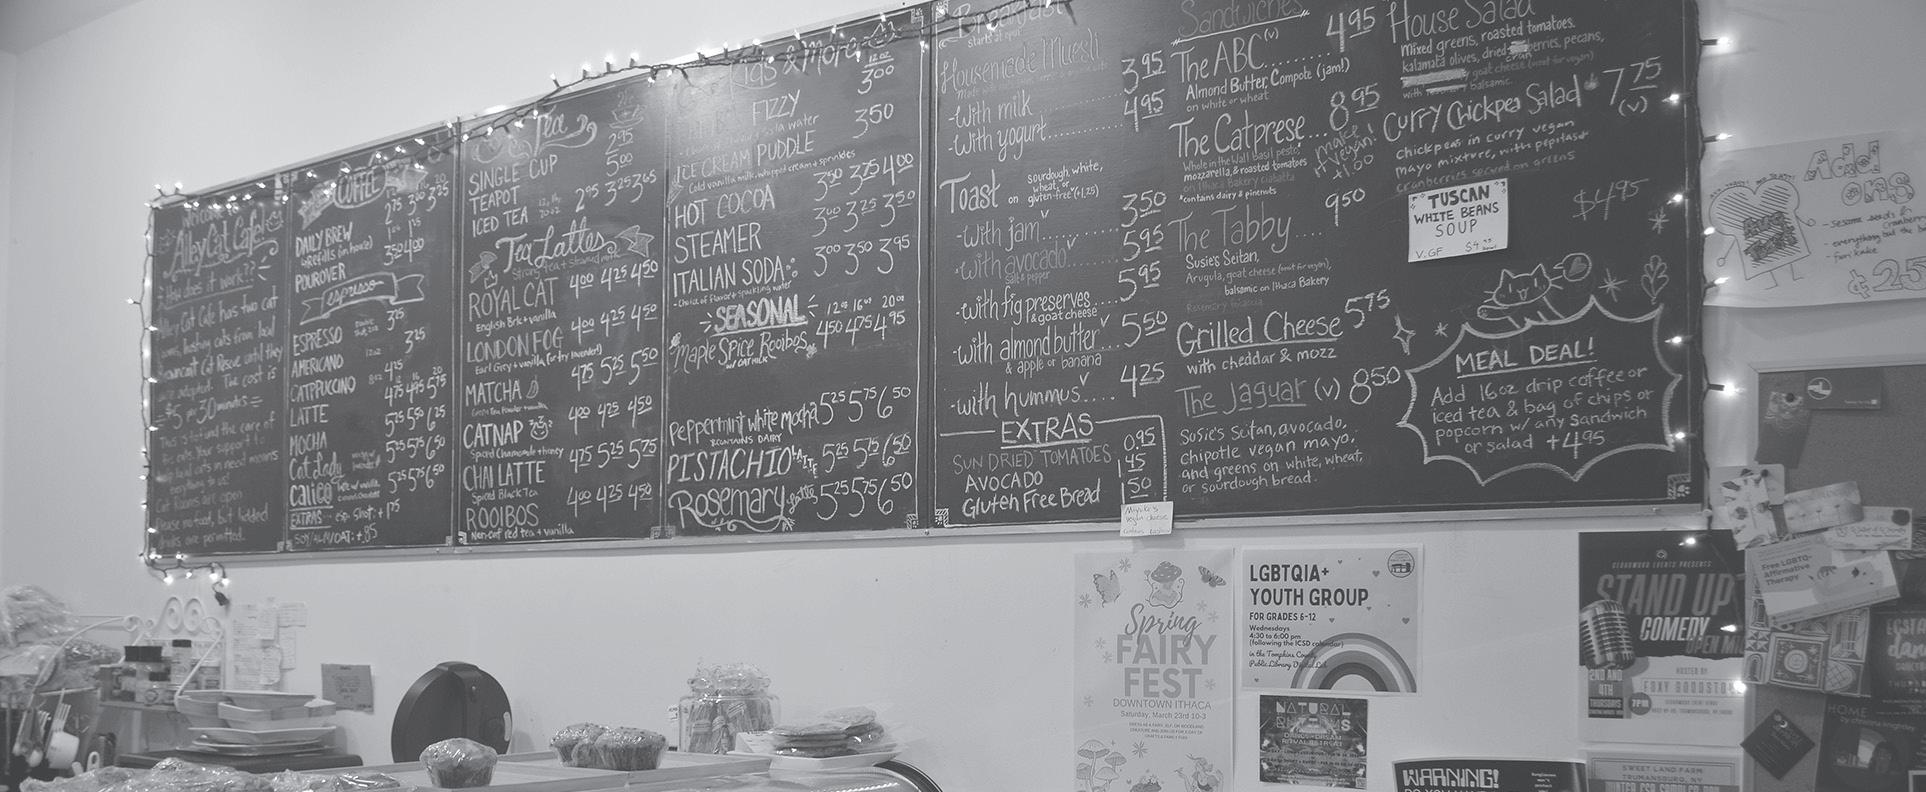 Welcome to
Alley Cat Cafe!
How does it work??
Alley Cat Cafe has two cat
rooms, hosting cats from local
Cat Rescue until they
are adopted. The cost is
$5 per 30 minutes
This is to fund the care of
the cats. Your support to
help local cats in need means
everything to us!
Cat Rooms are open
Please no food, but lidded
drinks are permitted.
COFFEE
DAILY BREW 2.75 3.00 3.25
(refills in house)
POUROVER 3.50 4.00
espresso
ESPRESSO 3.25
AMERICANO 3.25
CATPPUCCINO 4.25
LATTE 4.75 4.95 5.75
MOCHA 5.25 5.50 6.25
Cat Lady 5.25 5.75 6.50
calico 5.25 5.75 6.50
EXTRAS esp. shot: +1.75
SOY/ALM/OAT: +.85
Tea
SINGLE CUP 2.95
TEAPOT 5.00
ICED TEA 2.95 3.25 3.65
Tea Lattes
Strong tea + steamed milk
ROYAL CAT 4.00 4.25 4.50
English Brk + vanilla
LONDON FOG 4.00 4.25 4.50
Earl Grey + vanilla (or try lavender!)
MATCHA 4.75 5.25 5.50
Green Tea Powder + vanilla
CATNAP 4.00 4.25 4.50
Spiced Chamomile + honey
CHAI LATTE 4.75 5.25 5.75
Spiced Black Tea
ROOIBOS 4.00 4.25 4.50
Non-caf red tea + vanilla
Kids & More
12 oz
FIZZY 3.00
soda water
ICE CREAM PUDDLE 3.50
Cold vanilla milk, whipped cream + sprinkles
HOT COCOA 3.50 3.75 4.00
STEAMER 3.00 3.25 3.50
ITALIAN SODA 3.00 3.50 3.95
- Choice of flavor + sparkling water
SEASONAL 12oz 16oz 20oz
Maple Spice Rooibos 4.50 4.75 4.95
w/ OAT MILK
Peppermint white mocha 5.25 5.75 6.50
*CONTAINS DAIRY
PISTACHIO LATTE 5.25 5.75 6.50
Rosemary Latte 5.25 5.75 6.50
Breakfast
starts at open
Housemade Muesli
-with milk 3.95
-with yogurt 4.95
Toast on sourdough, white,
wheat, or
gluten-free (+1.25)
-with jam 3.50
-with avocado 5.95
salt & pepper
-with fig preserves 5.95
& goat cheese
-with almond butter 5.50
& apple or banana
-with hummus 4.25
EXTRAS
SUN DRIED TOMATOES 0.95
AVOCADO 1.45
Gluten Free Bread 1.50
vegan cheese
Sandwiches
The ABC (v) 4.95
Almond Butter, Compote (jam!)
on white or wheat
The Catprese 8.95
Whole in the Wall basil pesto,
mozzarella, & roasted tomatoes
on Ithaca Bakery ciabatta
*contains dairy & pinenuts
make it vegan! +1.00
The Tabby 9.50
Susie's Seitan,
Arugula, goat cheese (omit for vegan),
balsamic on Ithaca Bakery
Rosemary focaccia
Grilled Cheese 5.75
with cheddar & mozz
The Jaguar (v) 8.50
Susie's Seitan, avocado,
chipotle vegan mayo,
and greens on white, wheat,
or sourdough bread.
House Salad
Mixed greens, roasted tomatoes,
kalamata olives, dried cranberries, pecans,
goat cheese (omit for vegan)
with balsamic.
Curry Chickpea Salad 7.75
(v)
chickpeas in curry vegan
mayo mixture, with pepitas &
cranberries served on greens
TUSCAN
WHITE BEANS
SOUP
V. GF $4.95
$4.95
MEAL DEAL!
Add 16oz drip coffee or
iced tea & bag of chips or
popcorn w/ any Sandwich
or salad +4.95
Add
ons
- sesame seeds &
cranberry
- everything but the
Spring
FAIRY
FEST
DOWNTOWN ITHACA
Saturday, March 23rd 10-3
DRESS AS A FAIRY, ELF, OR WOODLAND
CREATURE AND JOIN US FOR A DAY OF
CRAFTS & FAMILY FUN!
LGBTQIA+
YOUTH GROUP
FOR GRADES 6-12
Wednesdays
4:30 to 6:00 pm
(following the ICSD calendar)
in the Tompkins County
Public Library Digital Lab
NATURAL
RHYTHMS
WARNING!
CEDARWOOD EVENTS PRESENTS
STAND UP
COMEDY
OPEN MIC
2ND AND
4TH
THURSDAYS
HOSTED BY
7PM
FOXY GOODSTO
SWEET LAND FARM
TRUMANSBURG, NY
WINTER CSA SAMPLER BAG
Free LGBTQ+
Affirmative
Therapy
HOME